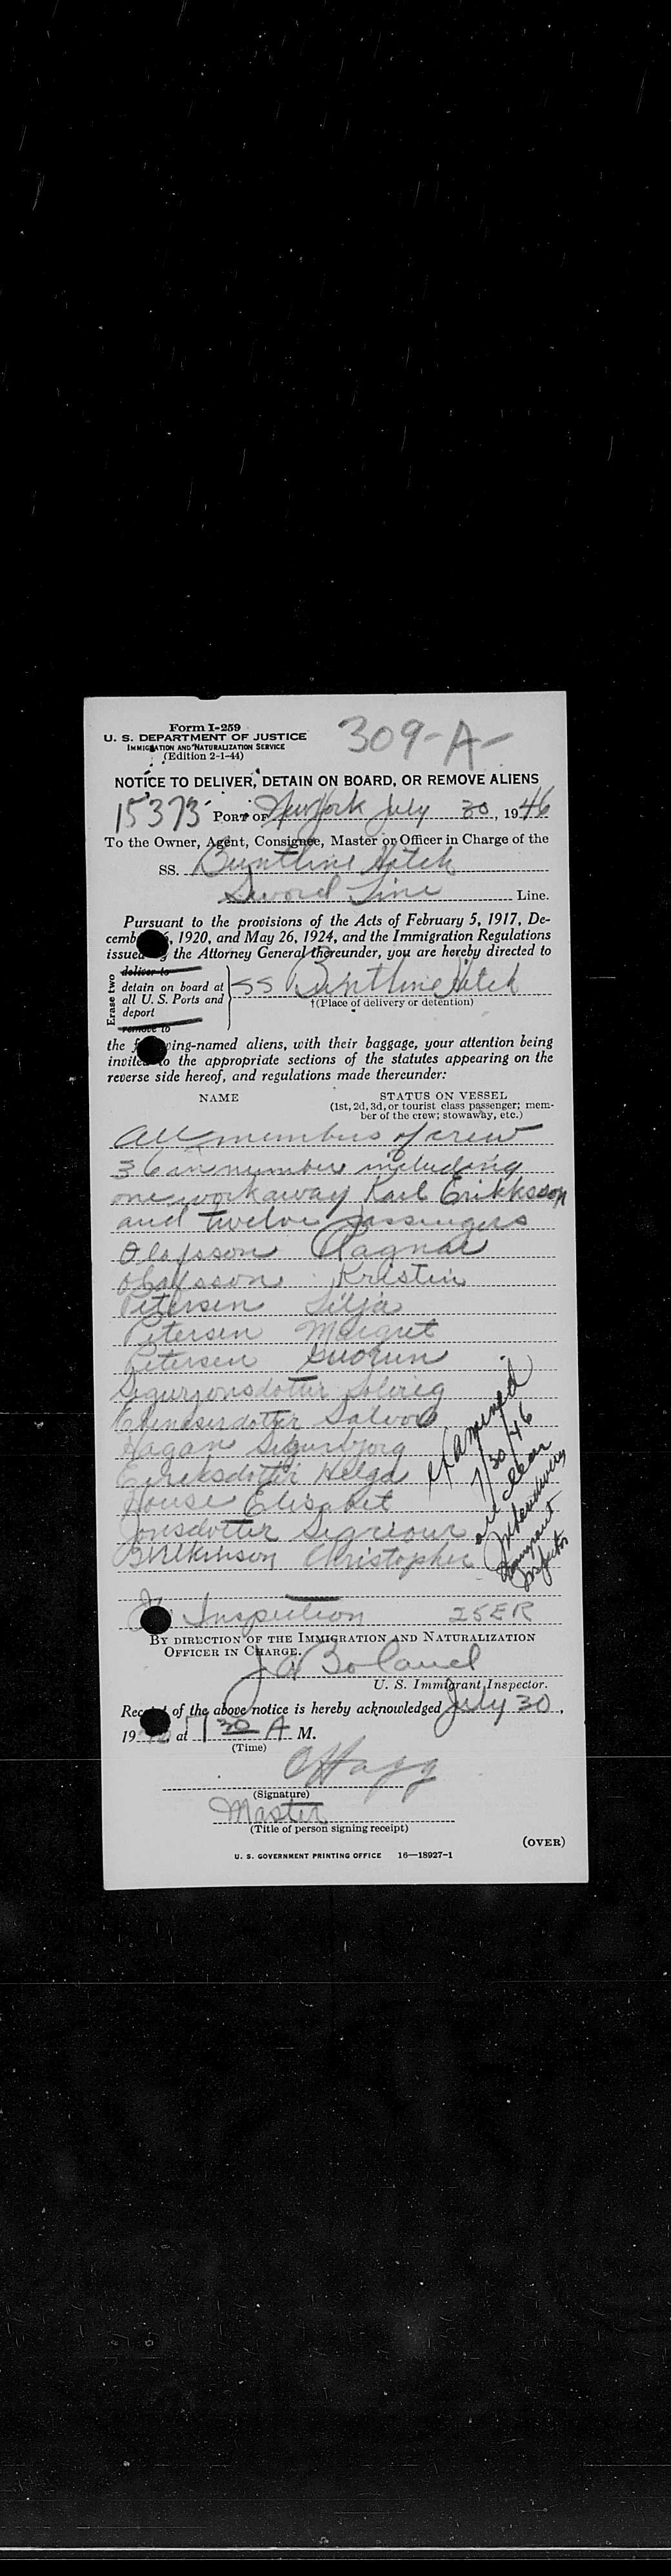 Form I-259
309-A-
U. S. DEPARTMENT OF JUSTICE
IMMIGRATION AND NATURALIZATION SERVICE
(Edition 2-1-44)
NOTICE TO DELIVER, DETAIN ON BOARD, OR REMOVE ALIENS
15373 PORT OF New York July 30, 1946
To the Owner, Agent, Consignee, Master or Officer in Charge of the
SS. Buntline Hitch
Sword Line Line.
Pursuant to the provisions of the Acts of February 5, 1917, De-
cemb , 1920, and May 26, 1924, and the Immigration Regulations
issued the Attorney General thereunder, you are hereby directed to
Erase two
deliver to
detain on board at
all U. S. Ports and
deport
remove to
SS Buntline Hitch
†(Place of delivery or detention)
the f ing-named aliens, with their baggage, your attention being
invited to the appropriate sections of the statutes appearing on the
reverse side hereof, and regulations made thereunder:
NAME STATUS ON VESSEL
(1st, 2d, 3d, or tourist class passenger; mem-
ber of the crew; stowaway, etc.)
All members of crew
36 in number including
one workaway Karl Erikksson
and twelve passengers
Olafsson Ragnar
Olafsson Kristin
Petersen Silja
Petersen Margret
Petersen Guorun
Sigurjonsdottir Solveig
Salvor
Hagan Sigurbjorg
Eireksdottir Helga
House Elisabet
Jonsdottir Sigriour
Wilkinson Christopher
Examined
7/30/46
all clear
Immigrant
Inspector
Inspection 25ER
BY DIRECTION OF THE IMMIGRATION AND NATURALIZATION
OFFICER IN CHARGE.
J A Boland
U. S. Immigrant Inspector.
Rec of the above notice is hereby acknowledged July 30,
19 at 7 30 A M.
(Time)
C Hagg
(Signature)
Master
(Title of person signing receipt)
(OVER)
U. S. GOVERNMENT PRINTING OFFICE 16—18927-1